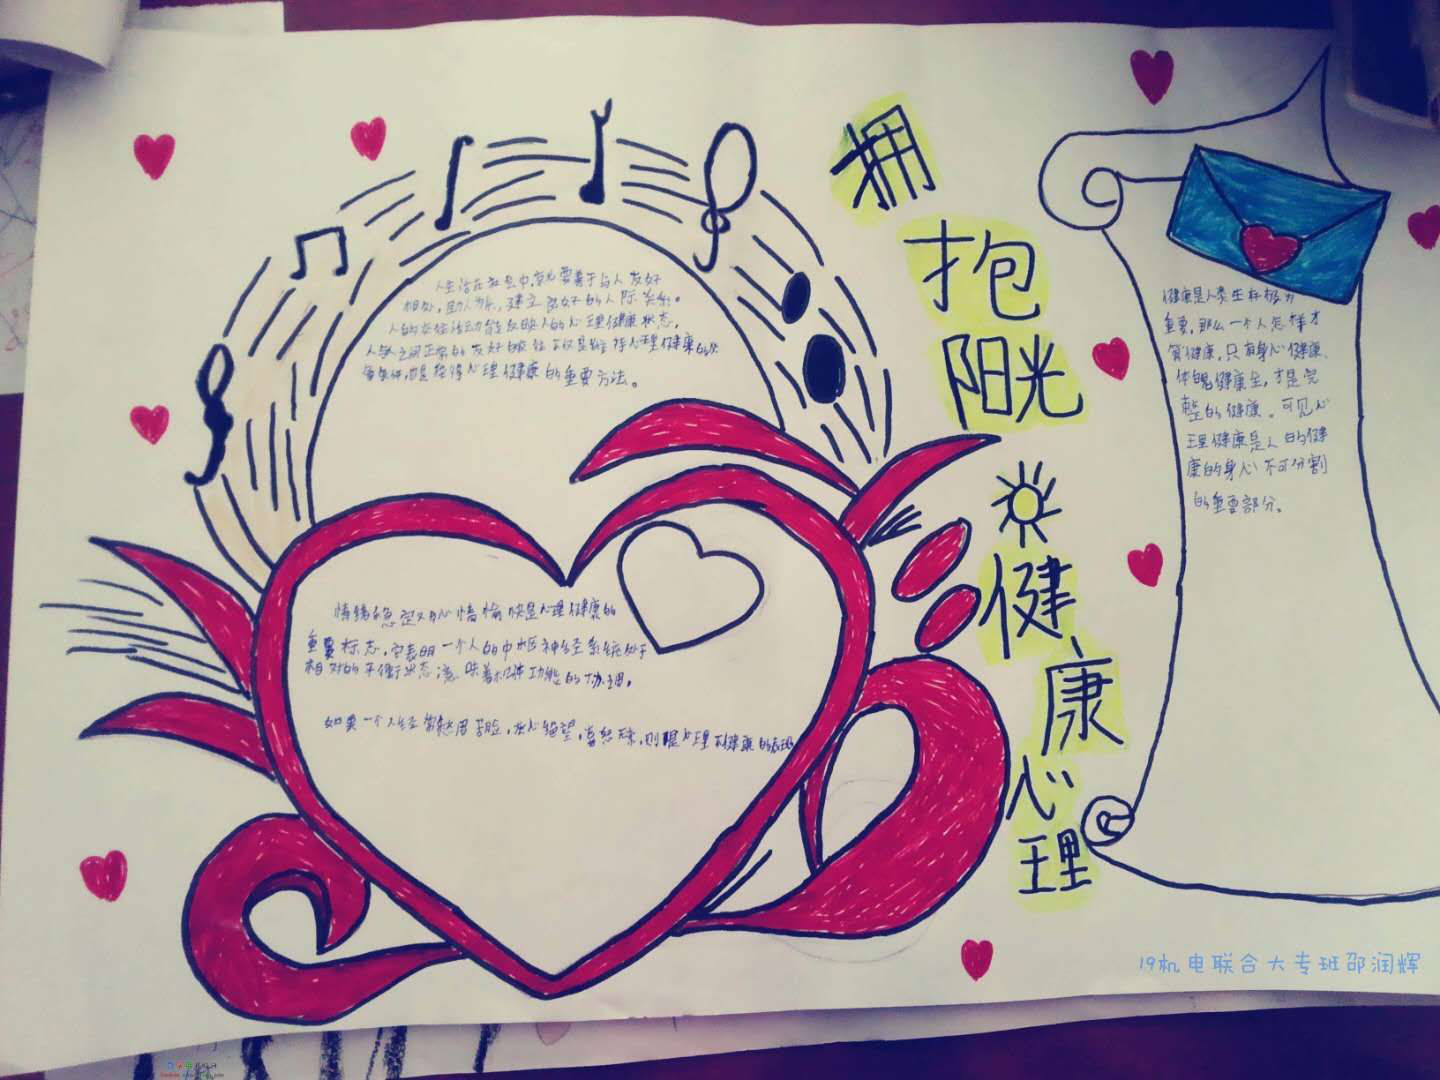 拥
抱
阳光
健
康
心
理
人生活在社会中,就要善于与人友好
相处,助人为乐,建立良好的人际关系。
人的交往活动能反映人的心理健康状态,
人与人之间正常的友好的交往不仅是维持心理健康的必
备条件,也是获得心理健康的重要方法。
情绪稳定又心情愉快是心理健康的
重要标志,它表明一个人的中枢神经系统处于
相对的平衡状态意味着机体功能的协调。
如果一个人经常愁眉苦脸,灰心绝望,喜怒无常,则是心理不健康的表现
健康是人类生存极为
重要,那么一个人怎样才
算健康,只有身心健康、
体魄健康全,才是完
整的健康。可见心
理健康是人的健
康的身心不可分割
的重要部分。
19机电联合大专班邵润辉